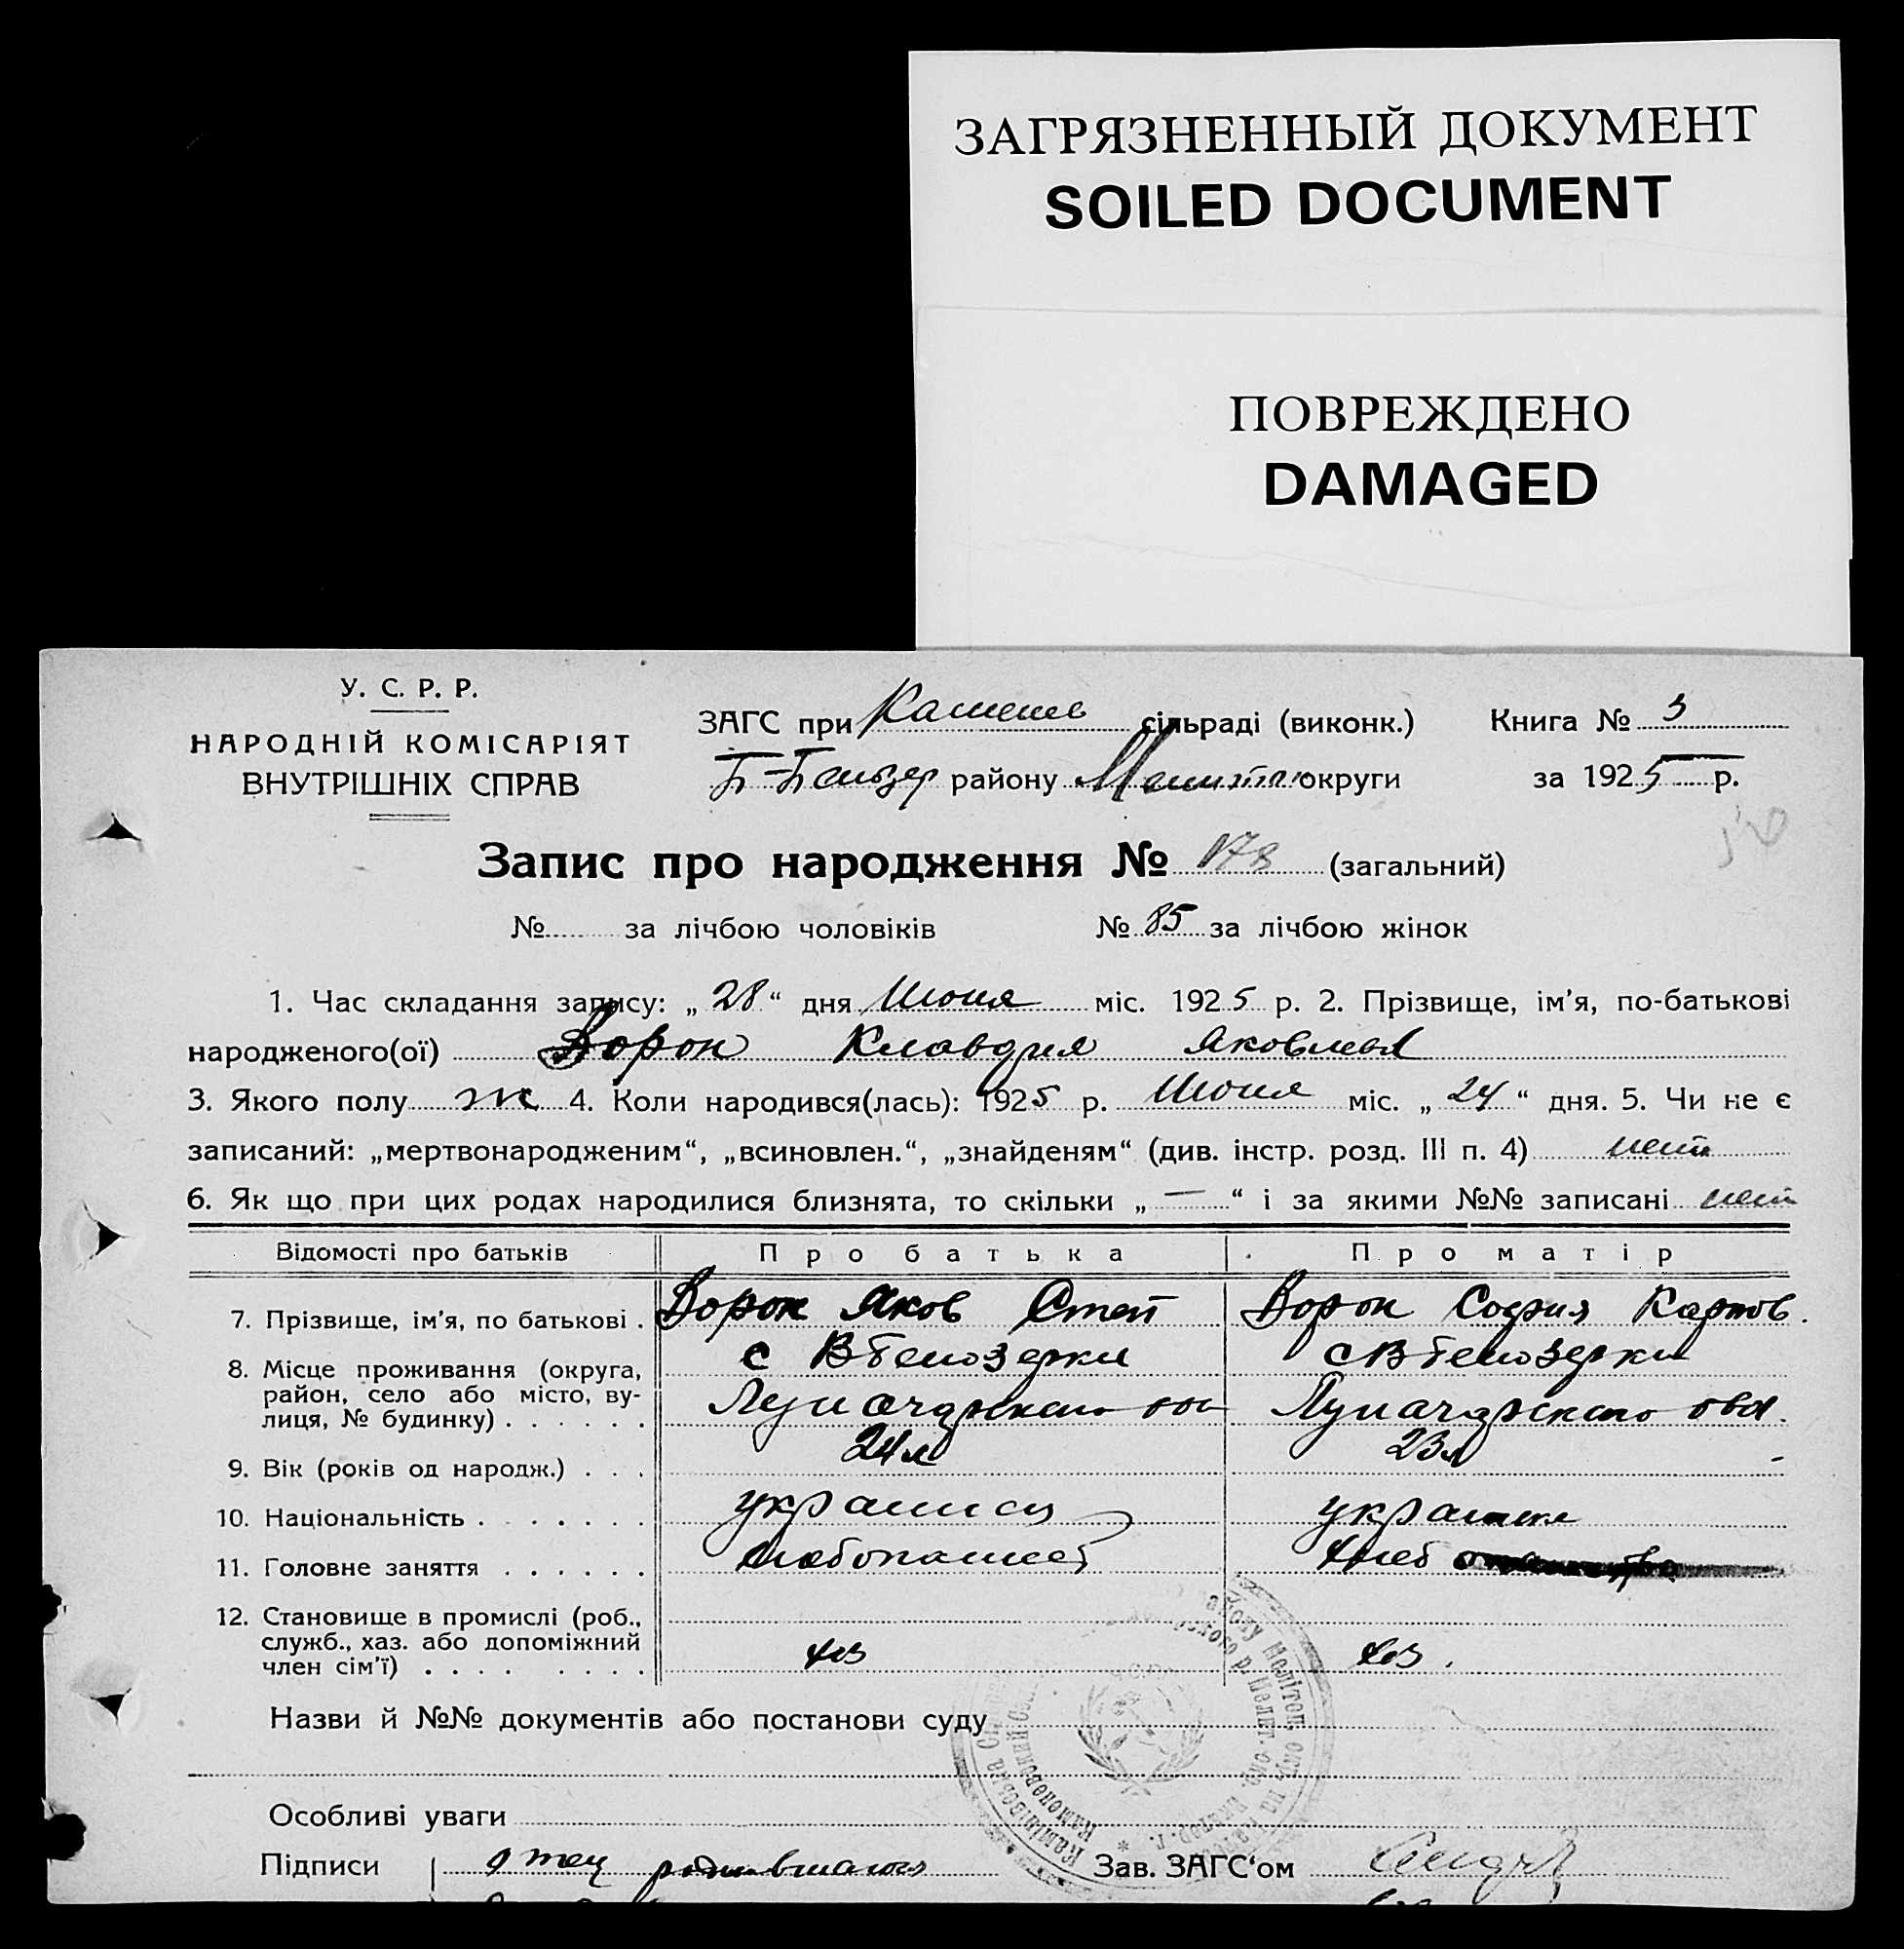 ЗАГРЯЗНЕННЫЙ ДОКУМЕНТ
SOILED DOCUMENT
ПОВРЕЖДЕНО
DAMAGED
У. С. Р. Р.
НАРОДНІЙ КОМІСАРІЯТ
ВНУТРІШНІХ СПРАВ
ЗАГС при сільраді (виконк.) Книга № 3
району округи за 1925 р.
Запис про народження № 178 (загальний)
№ за лічбою чоловіків № 85 за лічбою жінок
1. Час складання запису: „ 28 “ дня Июня міс. 1925 р. 2. Прізвище, ім'я, по-батькові
народженого(ої) Ворон Клавдия Яковлевл
3. Якого полу ж 4. Коли народився(лась): 1925 р. Июня міс. „ 24 “ дня. 5. Чи не є
записаний: „мертвонародженим“, „всиновлен.“, „знайденям“ (див. інстр. розд. III п. 4) нет
6. Як що при цих родах народилися близнята, то скільки „ — “ і за якими №№ записані нет
Відомості про батьків Про батька Про матір
7. Прізвище, ім'я, по батькові . Ворон Яков Степ Ворон София Карпов.
8. Місце проживання (округа, с В Белозерки с В Белозерки
район, село або місто, ву-
лиця, № будинку) . . . . . . Луначарского Луначарского
9. Вік (років од народж.) . . . 24 л 23 л
10. Національність . . . . . . . украинец украинка
11. Головне заняття . . . . . . хлебопашест хлеб
12. Становище в промислі (роб.,
служб., хаз. або допоміжний
член сім'ї) . . . . . . . . хоз хоз.
Назви й №№ документів або постанови суду
Особливі уваги
Підписи отец родившагося Зав. ЗАГС‘ом